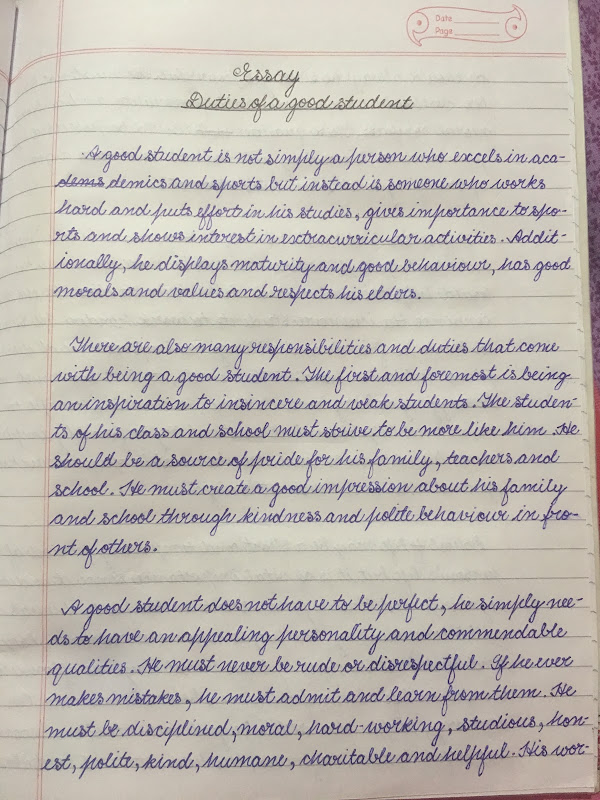 Date
Page
Essay
Duties of a good student
A good student is not simply a person who excels in aca-
dems demics and sports but instead is someone who works
hard and puts effort in his studies, gives importance to spo-
rts and shows interest in extracurricular activities. Addit-
ionally, he displays maturity and good behaviour, has good
morals and values and respects his elders.
There are also many responsibilities and duties that come
with being a good student. The first and foremost is being
an inspiration to insincere and weak students. The studen-
ts of his class and school must strive to be more like him. He
should be a source of pride for his family, teachers and
school. He must create a good impression about his family
and school through kindness and polite behaviour in fro-
nt of others.
A good student does not have to be perfect, he simply nee-
ds to have an appealing personality and commendable
qualities. He must never be rude or disrespectful. If he ever
makes mistakes, he must admit and learn from them. He
must be disciplined, moral, hard-working, studious, hon-
est, polite, kind, humane, charitable and helpful. His wor-